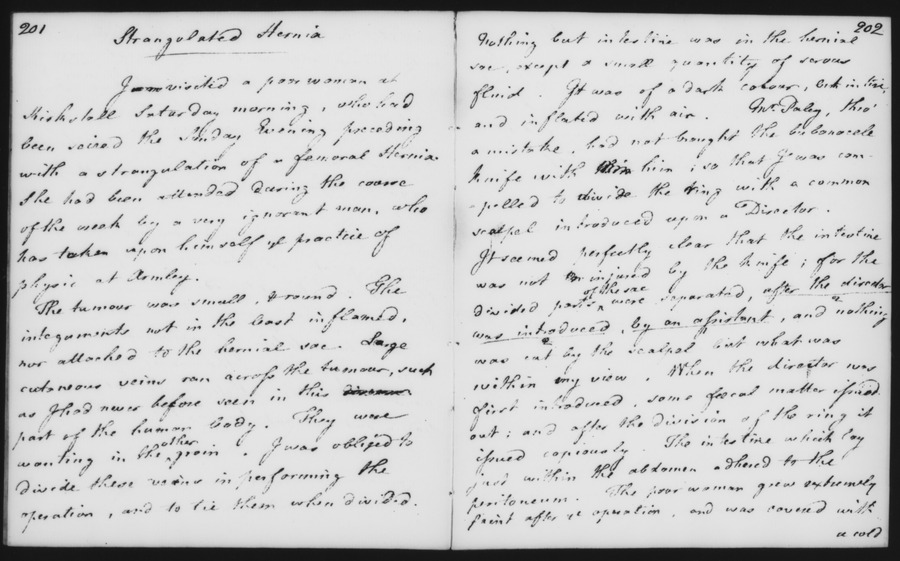 201
Strangulated Hernia
I visited a poor woman at
Kirkstall Saturday morning, who had
been seized the Sunday Evening preceding
with a strangulation of a femoral Hernia.
She had been attended during the course
of the week by a very ignorant man, who
has taken upon himself ye practice of
physic at Armley.
The tumour was small, & round. The
integuments not in the least inflamed,
nor attached to the hernial sac. Large
cutaneous veins ran across the tumour, such
as I had never before seen in this
part of the human body. They were
wanting in the other groin. I was obliged to
divide these veins in performing the
operation, and to tie them when divided.
202
Nothing but intestine was in the hernial
sac, except a small quantity of serous
fluid. It was of a dark colour, but intire,
and inflated with air. Mr. Paley, thro'
a mistake, had not brought the bubonocele
knife with him; so that I was com-
-pelled to divide the ring with a common
scalpel introduced upon a Director.
It seemed perfectly clear that the intestine
was not injured by the knife; for the
divided parts of the sac were separated, after the director
was introduced, by an assistant, and nothing
was cut by the scalpel but what was
within my view. When the director was
first introduced, some fœcal matter issued
out; and after the division of the ring it
issued copiously. The intestine which lay
just within the abdomen adhered to the
peritoneum. The poor woman grew extremely
faint after ye operation, and was covered with
a cold